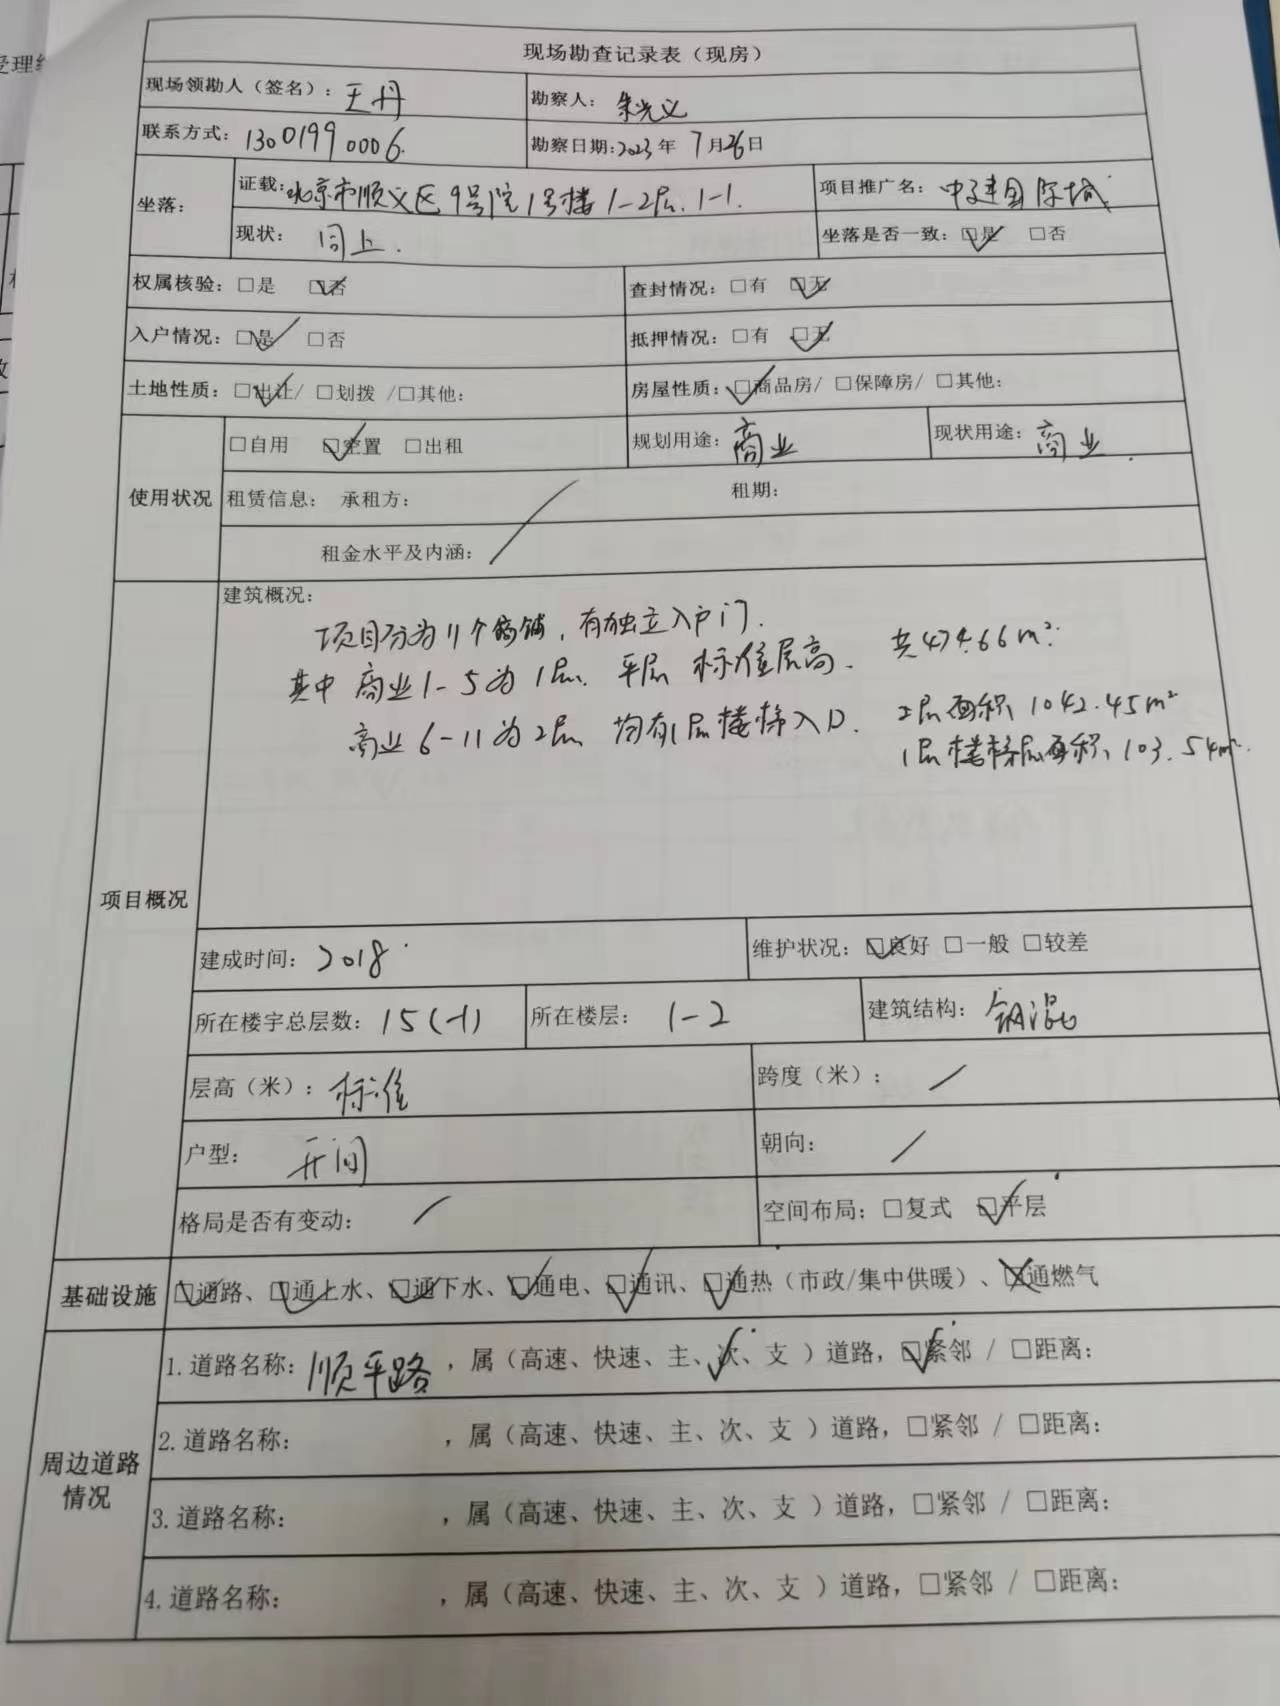 受理
现场勘查记录表（现房）
现场领勘人（签名）：王丹 勘察人：朱光义
联系方式：13001990006. 勘察日期:2023年 7月26日
坐落： 证载:北京市顺义区9号院1号楼1-2层.1-1. 项目推广名：中建国际城
现状： 同上. 坐落是否一致：☑是 □否
权属核验：□是 ☑否 查封情况：□有 ☑无
入户情况：☑是 □否 抵押情况：□有 ☑无
土地性质：☑出让/ □划拨 /□其他: 房屋性质：☑商品房/ □保障房/ □其他:
使用状况 □自用 ☑空置 □出租 规划用途：商业 现状用途：商业.
租赁信息： 承租方： 租期：
租金水平及内涵： /
项目概况 建筑概况：
项目分为11个商铺，有独立入户门.
其中 商业1-5为1层. 平层 标准层高. 共474.66m²
商业6-11为2层 均有1层楼梯入口. 2层面积 1042.45m²
1层楼梯层面积 103.54m².
建成时间：2018 维护状况：☑良好 □一般 □较差
所在楼宇总层数：15(-1) 所在楼层： 1-2 建筑结构： 钢混
层高（米）：标准 跨度（米）： /
户型： 开间 朝向： /
格局是否有变动： / 空间布局：□复式 ☑平层
基础设施 ☑通路、☑通上水、☑通下水、☑通电、☑通讯、☑通热（市政/集中供暖）、☒通燃气
周边道路情况 1.道路名称：顺平路 ，属（高速、快速、主、次✓、支 ）道路，☑紧邻 / □距离：
2.道路名称： ，属（高速、快速、主、次、支 ）道路，□紧邻 / □距离：
3.道路名称： ，属（高速、快速、主、次、支 ）道路，□紧邻 / □距离：
4.道路名称： ，属（高速、快速、主、次、支 ）道路，□紧邻 / □距离：